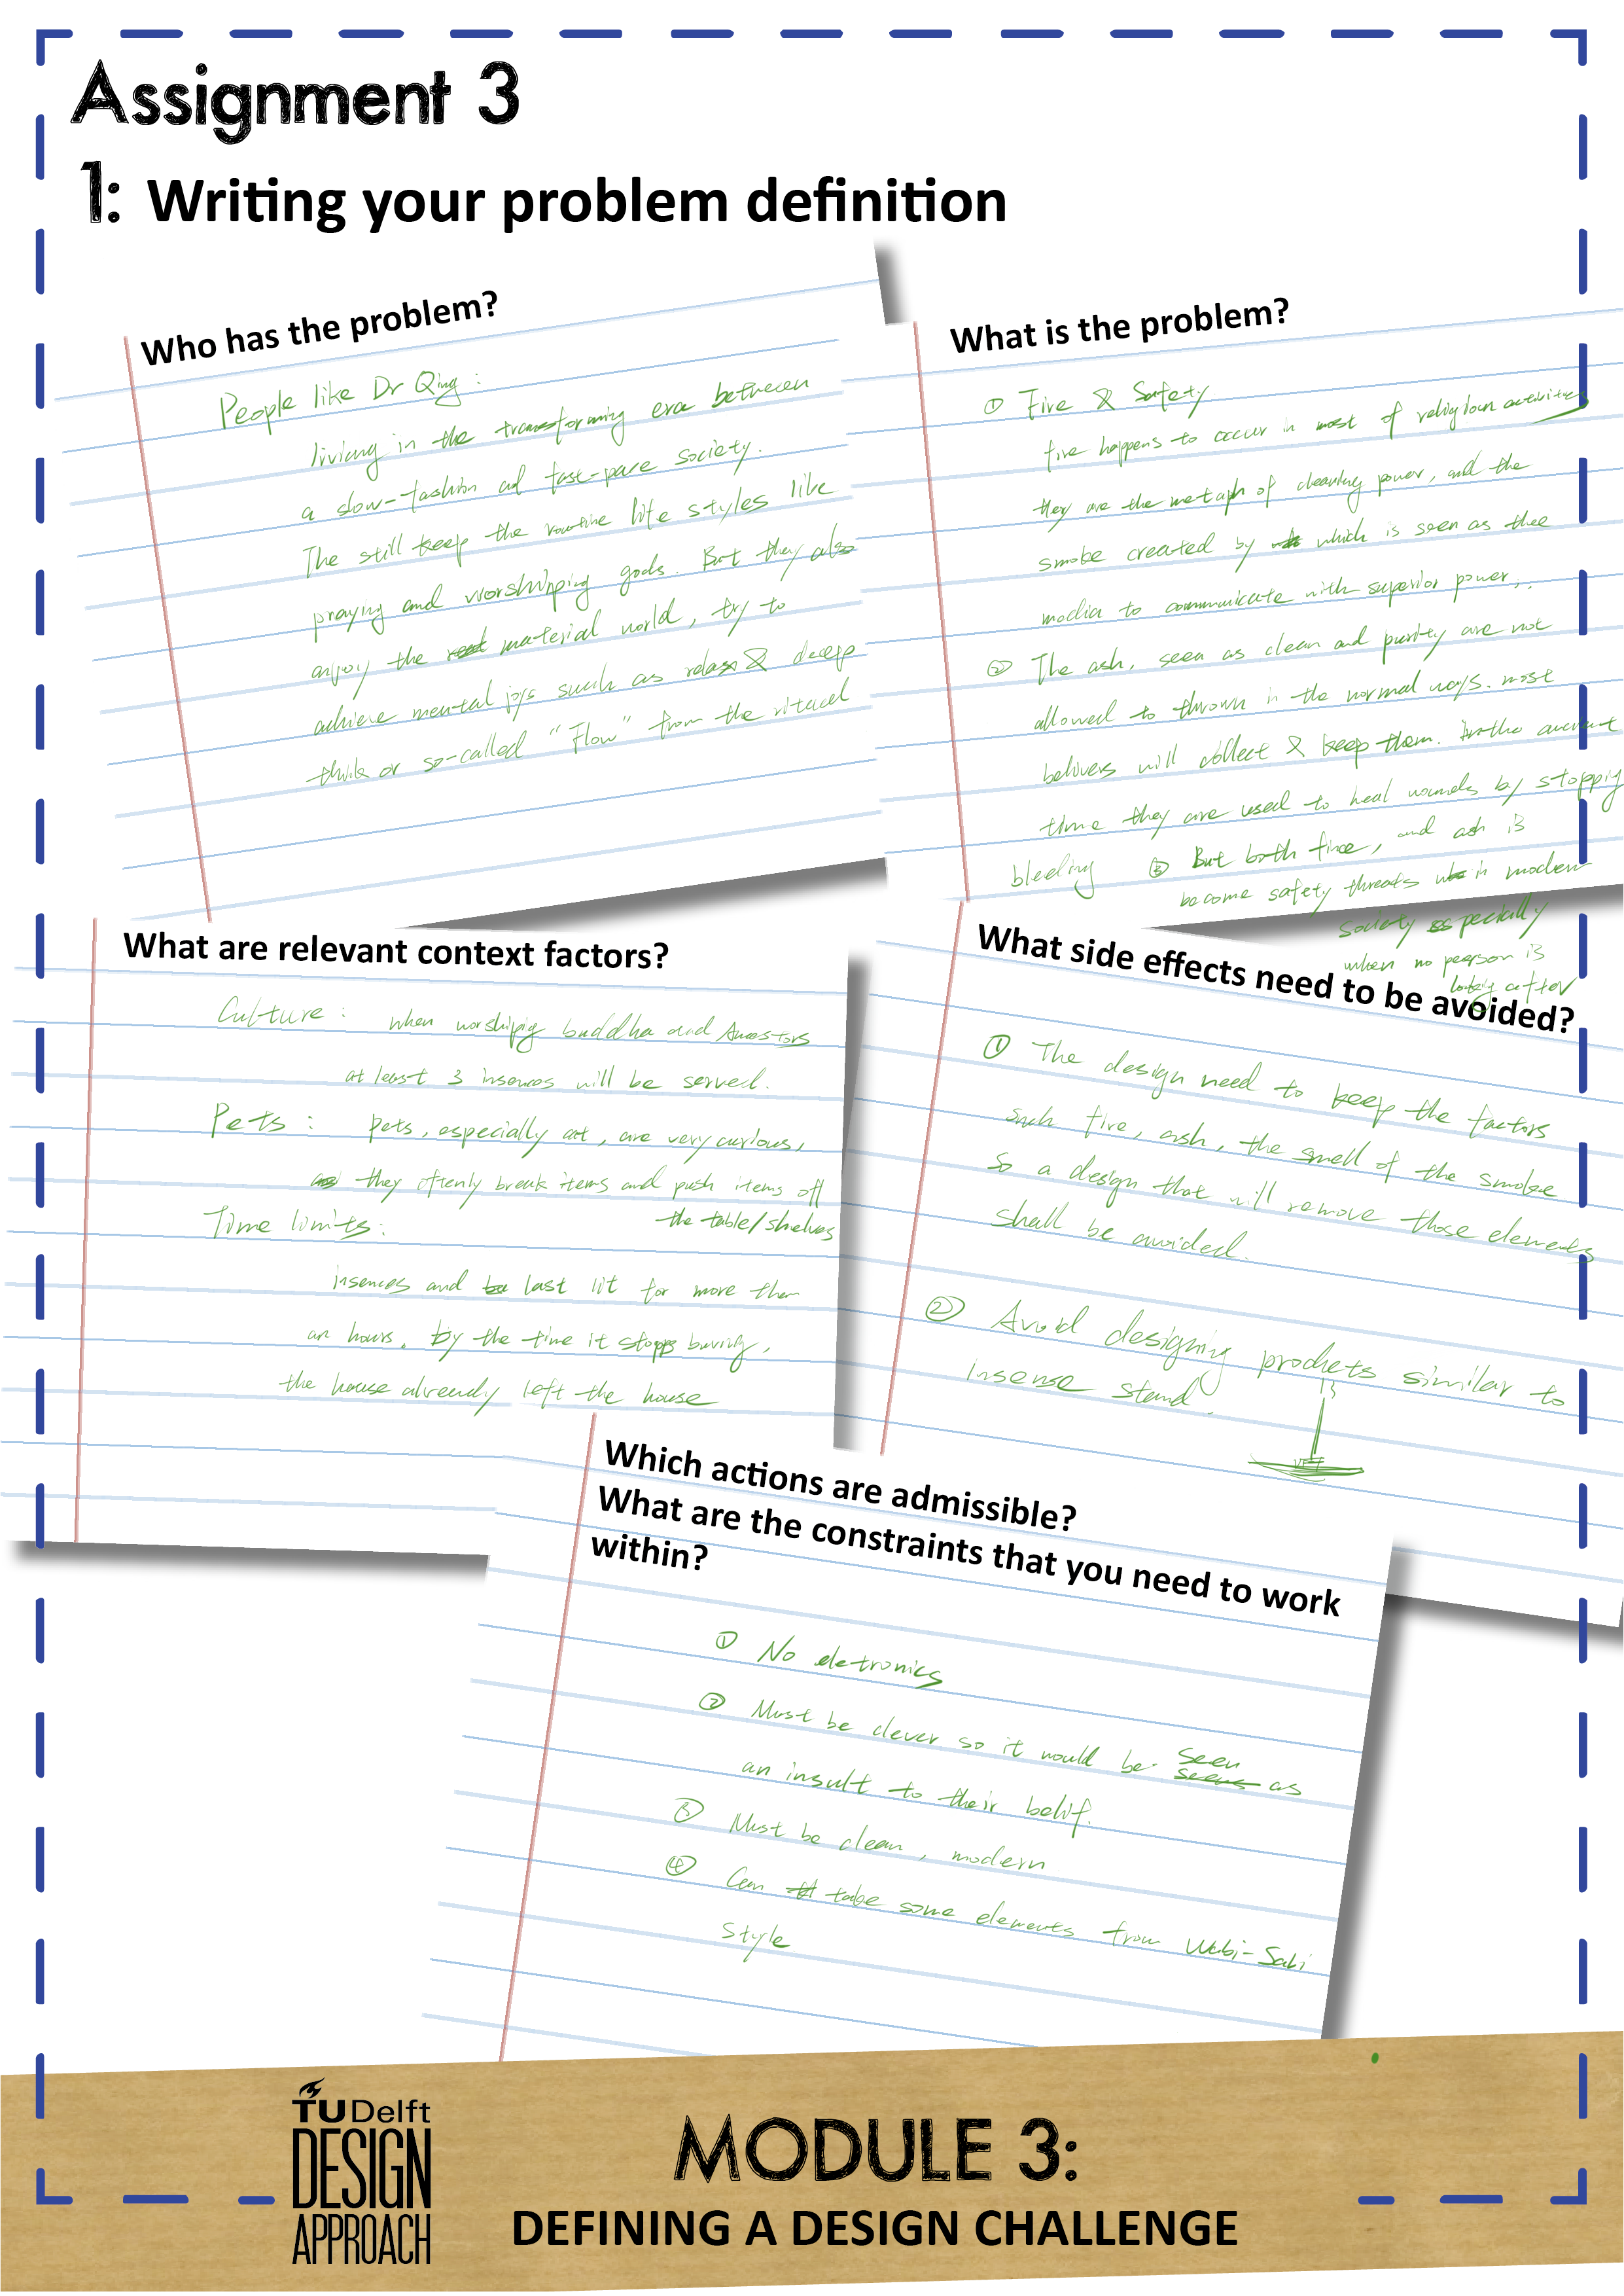 Assignment 3
1: Writing your problem definition
Who has the problem?
People like Dr Qing :
living in the transforming era between
a slow-fashion ad fast-pace society.
The still keep the routine life styles like
praying and worshinping gods. But they also
anjoy the material world, try to
achieve mental joys such as relax & deeep
think or so-called "Flow" from the ritual
What is the problem?
① Fire & Safety
fire happens to occur in most of religioun activities
they are the metaph of cleaning power, and the
smoke created by which is seen as thee
media to communicate with superior power,.
② The ash, seen as clean and purity are not
allowed to thrown in the normal ways. most
belivers will collect & keep them. In the
time they are used to heal wounds by stoppig
bleeding
③ But both fire, and ash is
become safety threats in modern
society especially
when no peerson is
after
What are relevant context factors?
Culture : when worshipig buddha and Ancestors
at least 3 insences will be served.
Pets : pets, especially cat, are very curious,
they oftenly break items and push items off
the table/shelves
Time limits:
insences and last lit for more then
an hours. by the time it stopps burnig,
the house already left the house
What side effects need to be avoided?
① The design need to keep the factors
such fire, ash, the smell of the smoke
So a design that will remove those elements
shall be avoided.
② Avoid designing prodcts similar to
insense stand.
Which actions are admissible?
What are the constraints that you need to work
within?
① No eletronics
② Must be clever so it would be seen as
an insult to their belif.
③ Must be clean, modern
④ Can take some elements from Wabi-Sabi
Style
TU Delft
DESIGN
APPROACH
MODULE 3:
DEFINING A DESIGN CHALLENGE